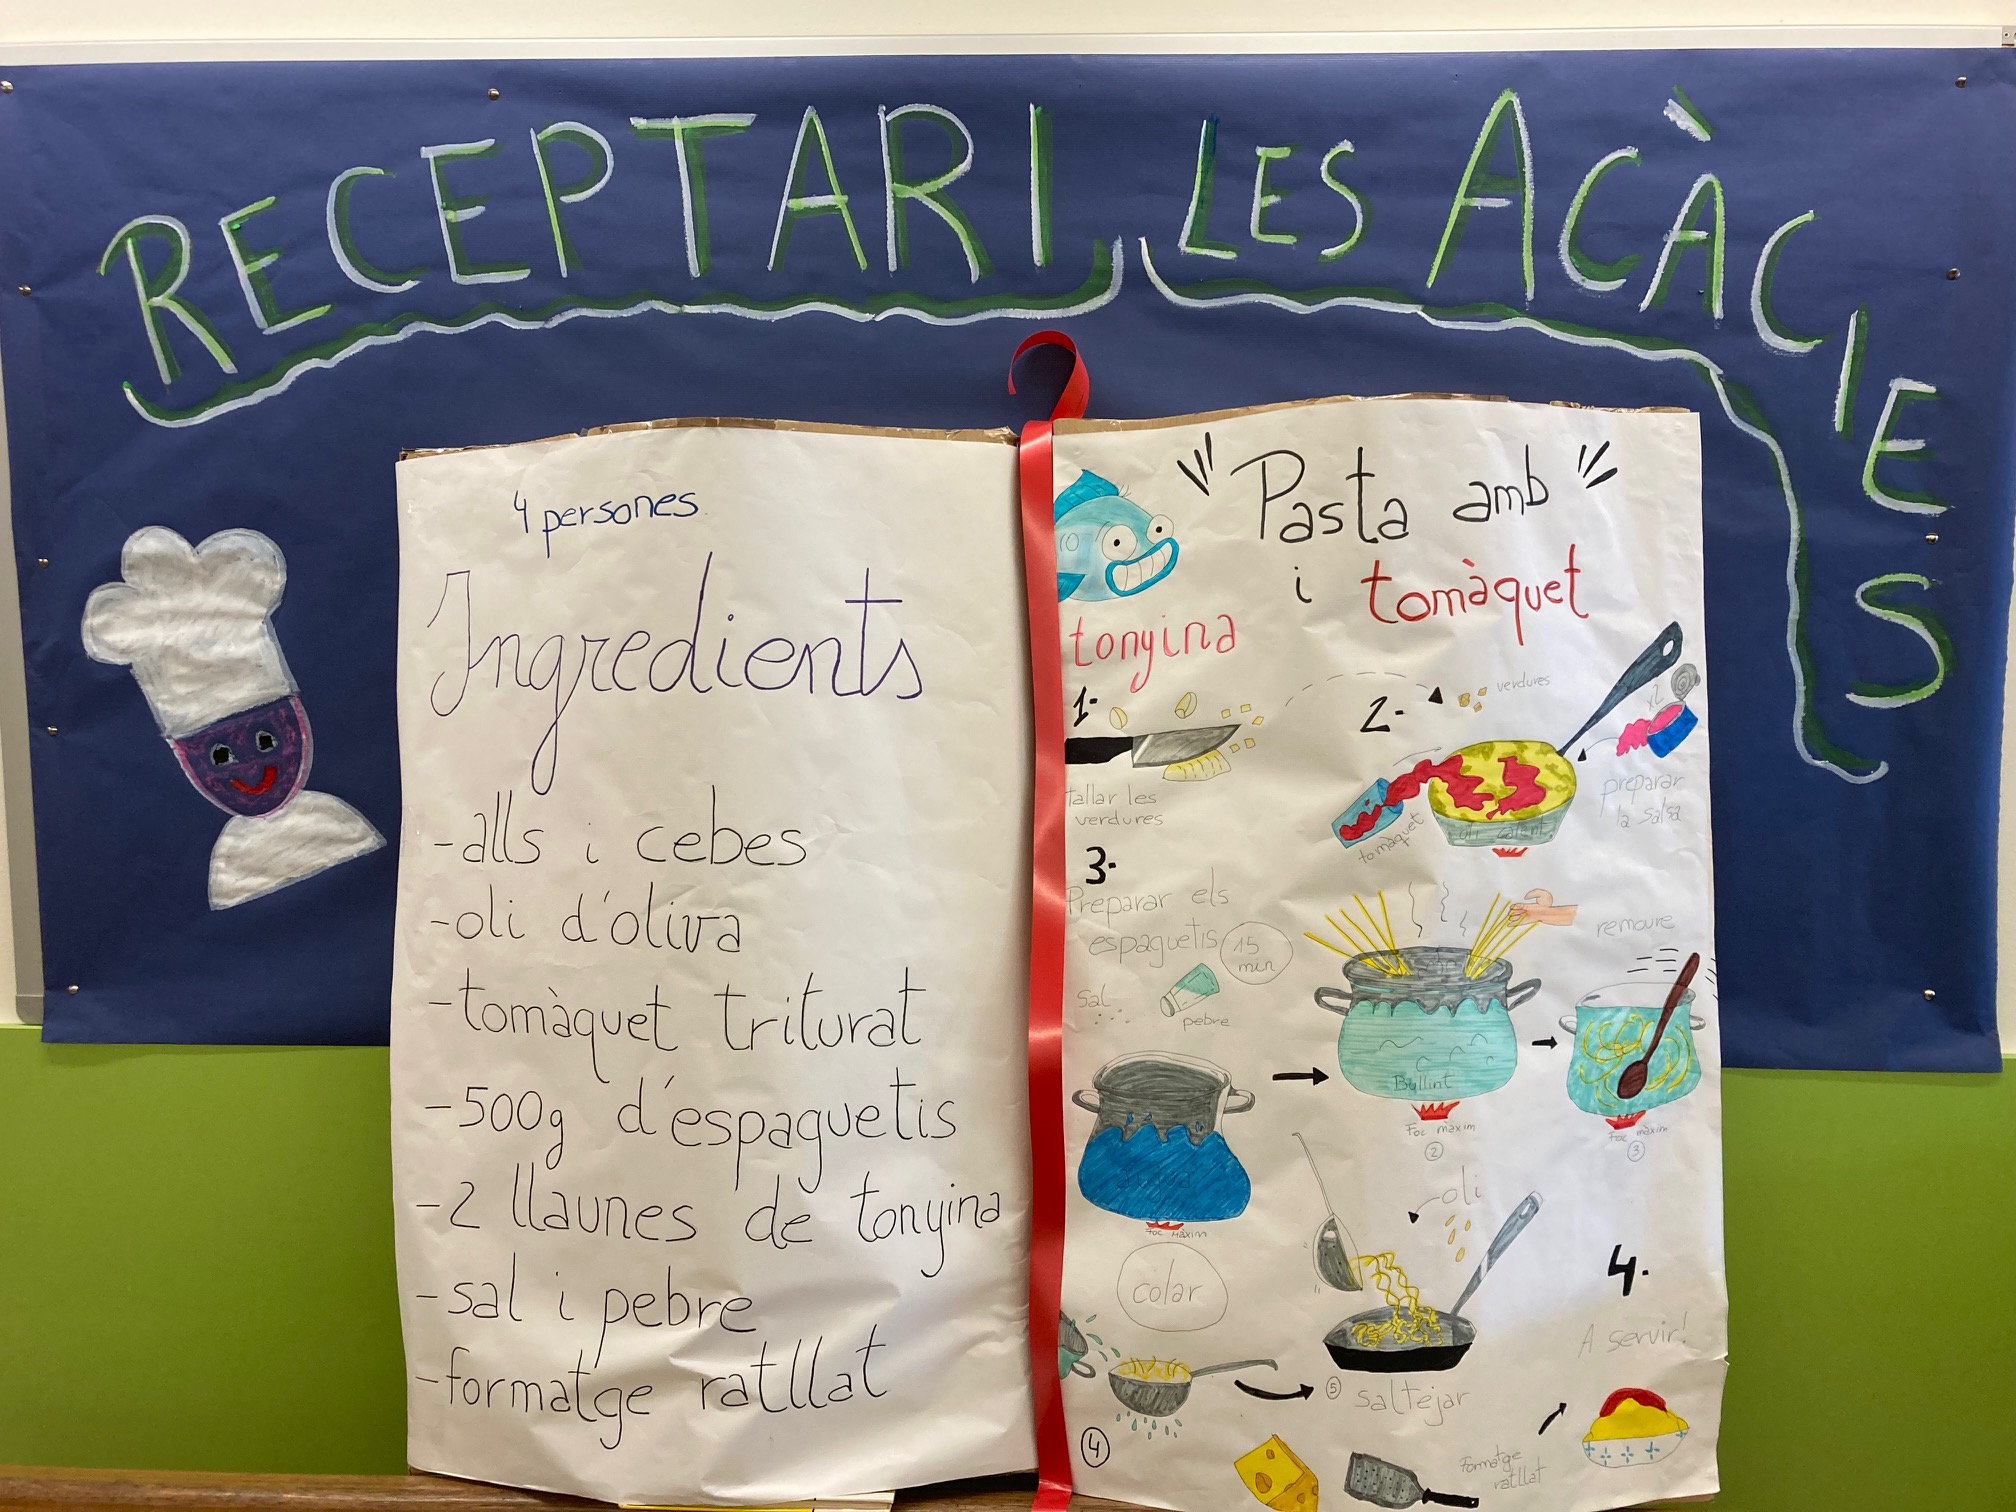 RECEPTARI LES ACÀCIES
4 persones
Ingredients
-alls i cebes
-oli d'oliva
-tomàquet triturat
-500g d'espaguetis
-2 llaunes de tonyina
-sal i pebre
-formatge ratllat
"Pasta amb"
i tomàquet
tonyina
1-
tallar les
verdures
2-
verdures
x2
tomàquet
oli calent
preparar
la salsa
3-
Preparar els
espaguetis
15
min
sal
pebre
aigua
Foc màxim
Bullint
Foc màxim
2
remoure
Foc màxim
3
colar
4
oli
5
saltejar
4.
A servir!
Formatge
ratllat